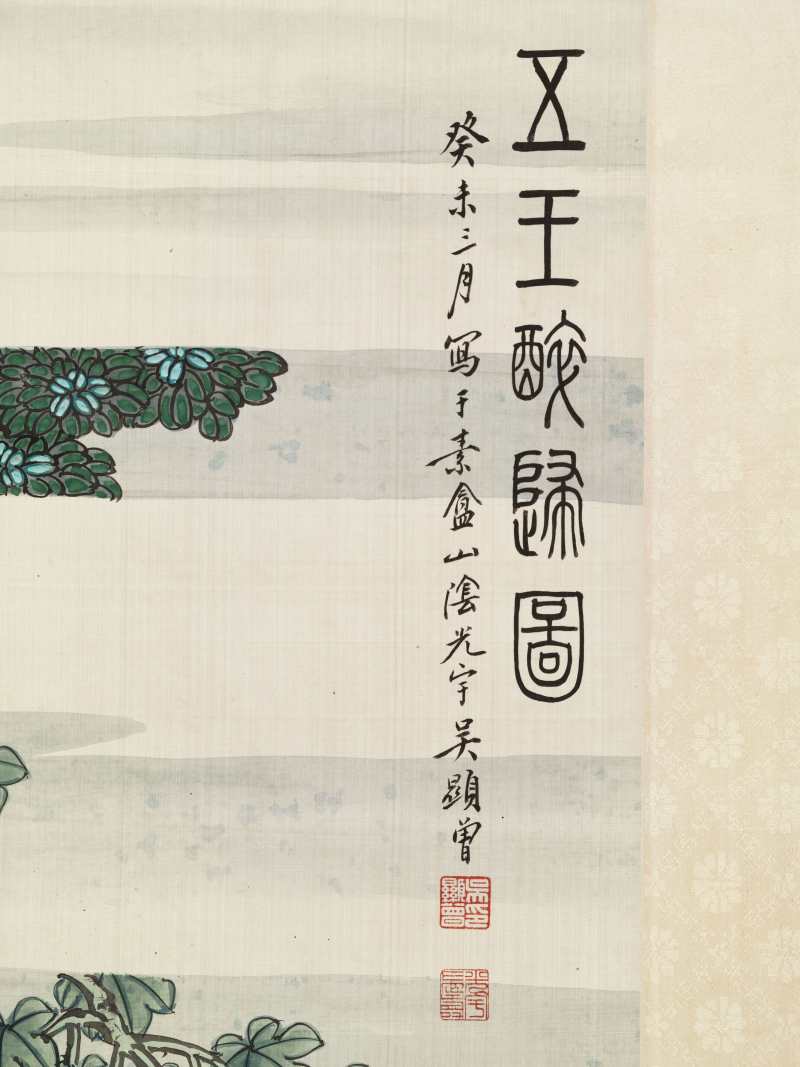 五王醉歸圖
癸未三月寫于素盦山陰光宇吳顯曾
吳顯曾印